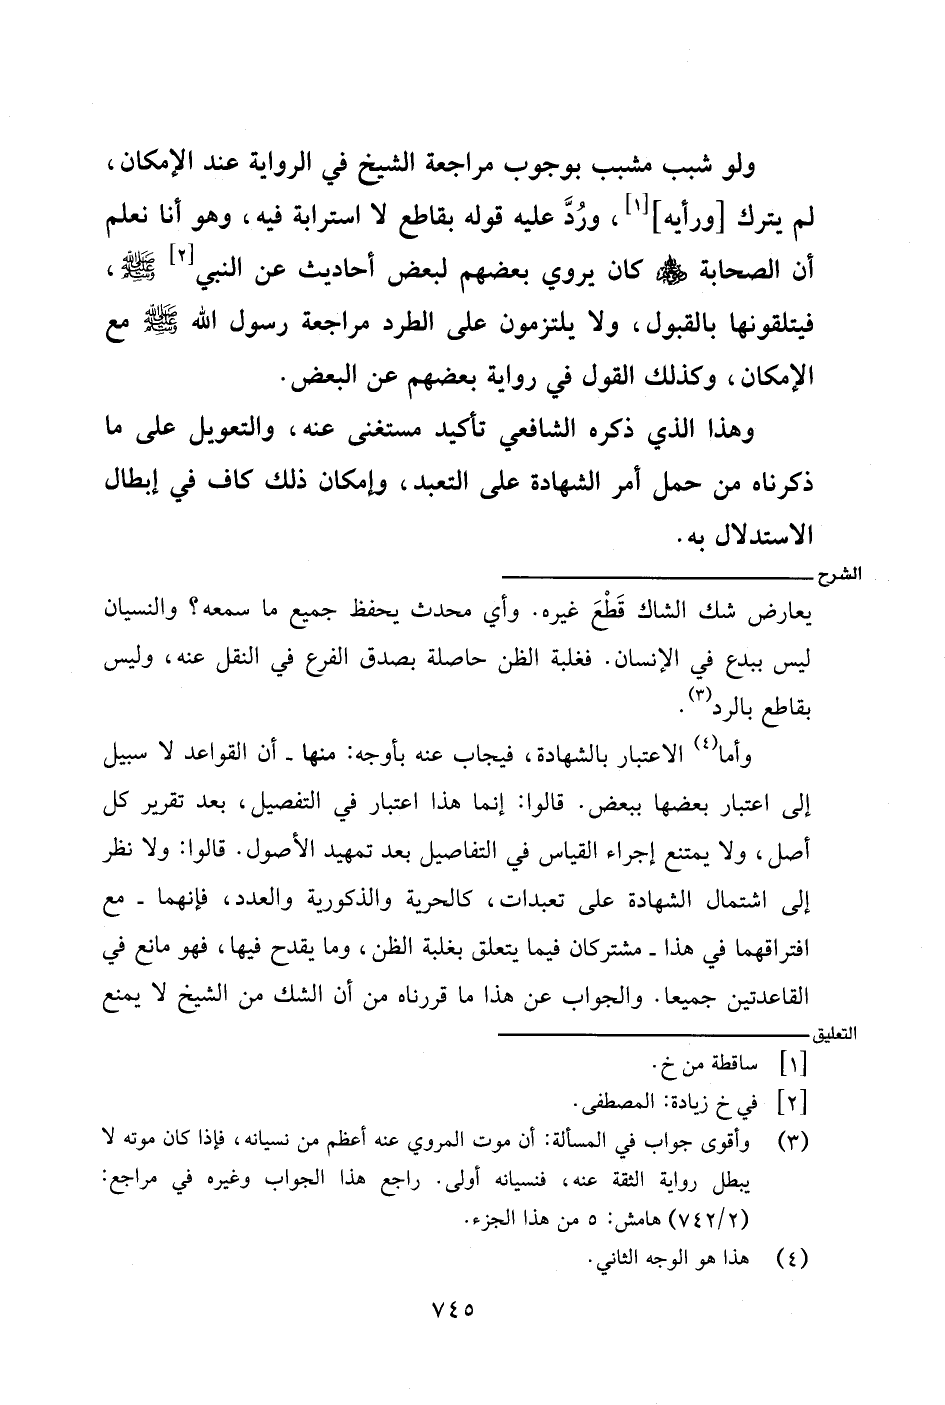 ولو شبب مشبب بوجوب مراجعة الشيخ في الرواية عند الإمكان،
لم يترك [ورأيه][١]، ورُدَّ عليه قوله بقاطع لا استرابة فيه، وهو أنا نعلم
أن الصحابة ﷺ كان يروي بعضهم لبعض أحاديث عن النبي[٢] ﷺ،
فيتلقونها بالقبول، ولا يلتزمون على الطرد مراجعة رسول الله ﷺ مع
الإمكان، وكذلك القول في رواية بعضهم عن البعض.
وهذا الذي ذكره الشافعي تأكيد مستغنى عنه، والتعويل على ما
ذكرناه من حمل أمر الشهادة على التعبد، وإمكان ذلك كاف في إبطال
الاستدلال به.
الشرح
يعارض شك الشاك قَطْعَ غيره. وأي محدث يحفظ جميع ما سمعه؟ والنسيان
ليس ببدع في الإنسان. فغلبة الظن حاصلة بصدق الفرع في النقل عنه، وليس
بقاطع بالرد(٣).
وأما(٤) الاعتبار بالشهادة، فيجاب عنه بأوجه: منها ـ أن القواعد لا سبيل
إلى اعتبار بعضها ببعض. قالوا: إنما هذا اعتبار في التفصيل، بعد تقرير كل
أصل، ولا يمتنع إجراء القياس في التفاصيل بعد تمهيد الأصول. قالوا: ولا نظر
إلى اشتمال الشهادة على تعبدات، كالحرية والذكورية والعدد، فإنهما ـ مع
افتراقهما في هذا ـ مشتركان فيما يتعلق بغلبة الظن، وما يقدح فيها، فهو مانع في
القاعدتين جميعا. والجواب عن هذا ما قررناه من أن الشك من الشيخ لا يمنع
التعليق
[١] ساقطة من خ.
[٢] في خ زيادة: المصطفى.
(٣) وأقوى جواب في المسألة: أن موت المروي عنه أعظم من نسيانه، فإذا كان موته لا
يبطل رواية الثقة عنه، فنسيانه أولى. راجع هذا الجواب وغيره في مراجع:
(٧٤٢/٢) هامش: ٥ من هذا الجزء.
(٤) هذا هو الوجه الثاني.
٧٤٥